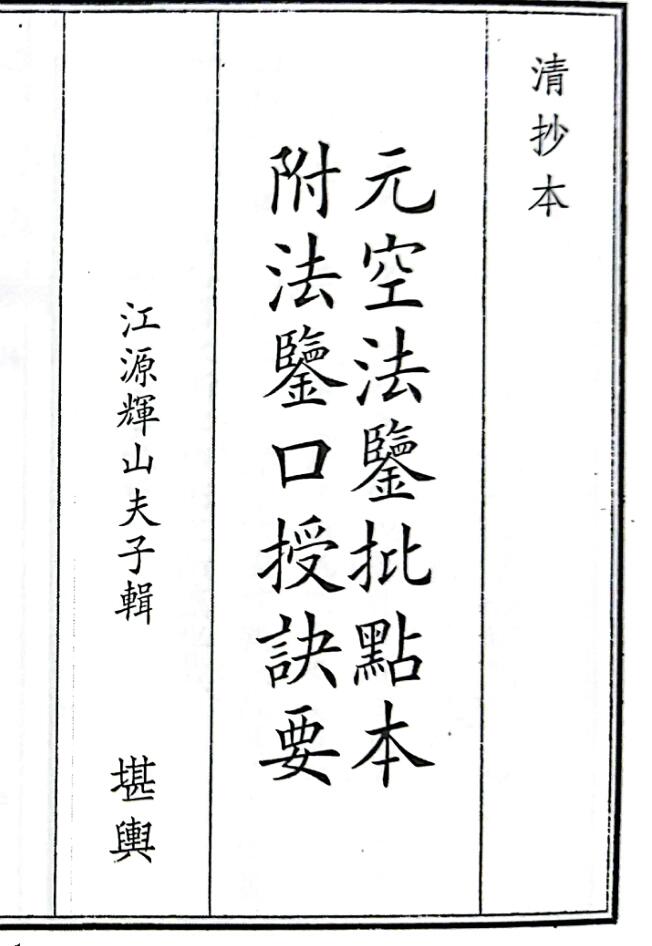 清抄本
元空法鑒批點本
附法鑒口授訣要
江源輝山夫子輯
堪輿